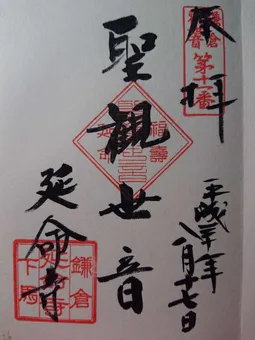 奉拝
鎌倉
観音
第十一番
平成二十年
八月十七日
聖観世音
福壽
延命
延命寺
鎌倉
延命寺
下馬